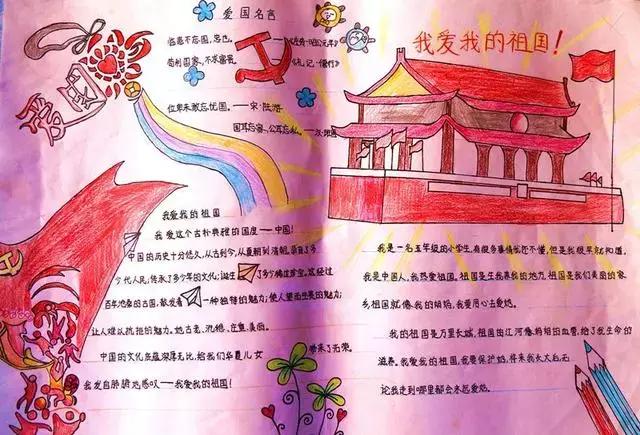 爱国名言
临患不忘国,忠也。——《左传·昭公元年》
苟利国家,不求富贵。——《礼记·儒行》
位卑未敢忘忧国。——宋·陆游
国耳忘家,公耳忘私。——汉·
我爱我的祖国
我爱这个古朴典雅的国度——中国!
中国的历史十分悠久,从古到今,从夏朝到清朝,
个代人民;传承了多少年的文化;诞生了多少稀世珍宝。这经过
百年沧桑的古国,散发着一种独特的魅力;使人望而生畏的魅力;
让人难以抗拒的魅力。她古老、沉稳、庄重、美丽。
中国的文化底蕴深厚无比,给我们华夏儿女带来了无荣。
我发自肺腑地感叹——我爱我的祖国!
我爱我的祖国!
我是一名五年级的小学生,有很多事情我还不懂,但是我很早就知道,
我是中国人,我热爱祖国。祖国是生我养我的地方,祖国是我们美丽的家
乡,祖国就像我的妈妈,我要用心去爱她。
我的祖国是万里长城,祖国的江河像妈妈的血管,给了我生命的
滋养。我爱我的祖国,我要保护她,将来我长大后,无
论我走到哪里都会永远爱她。